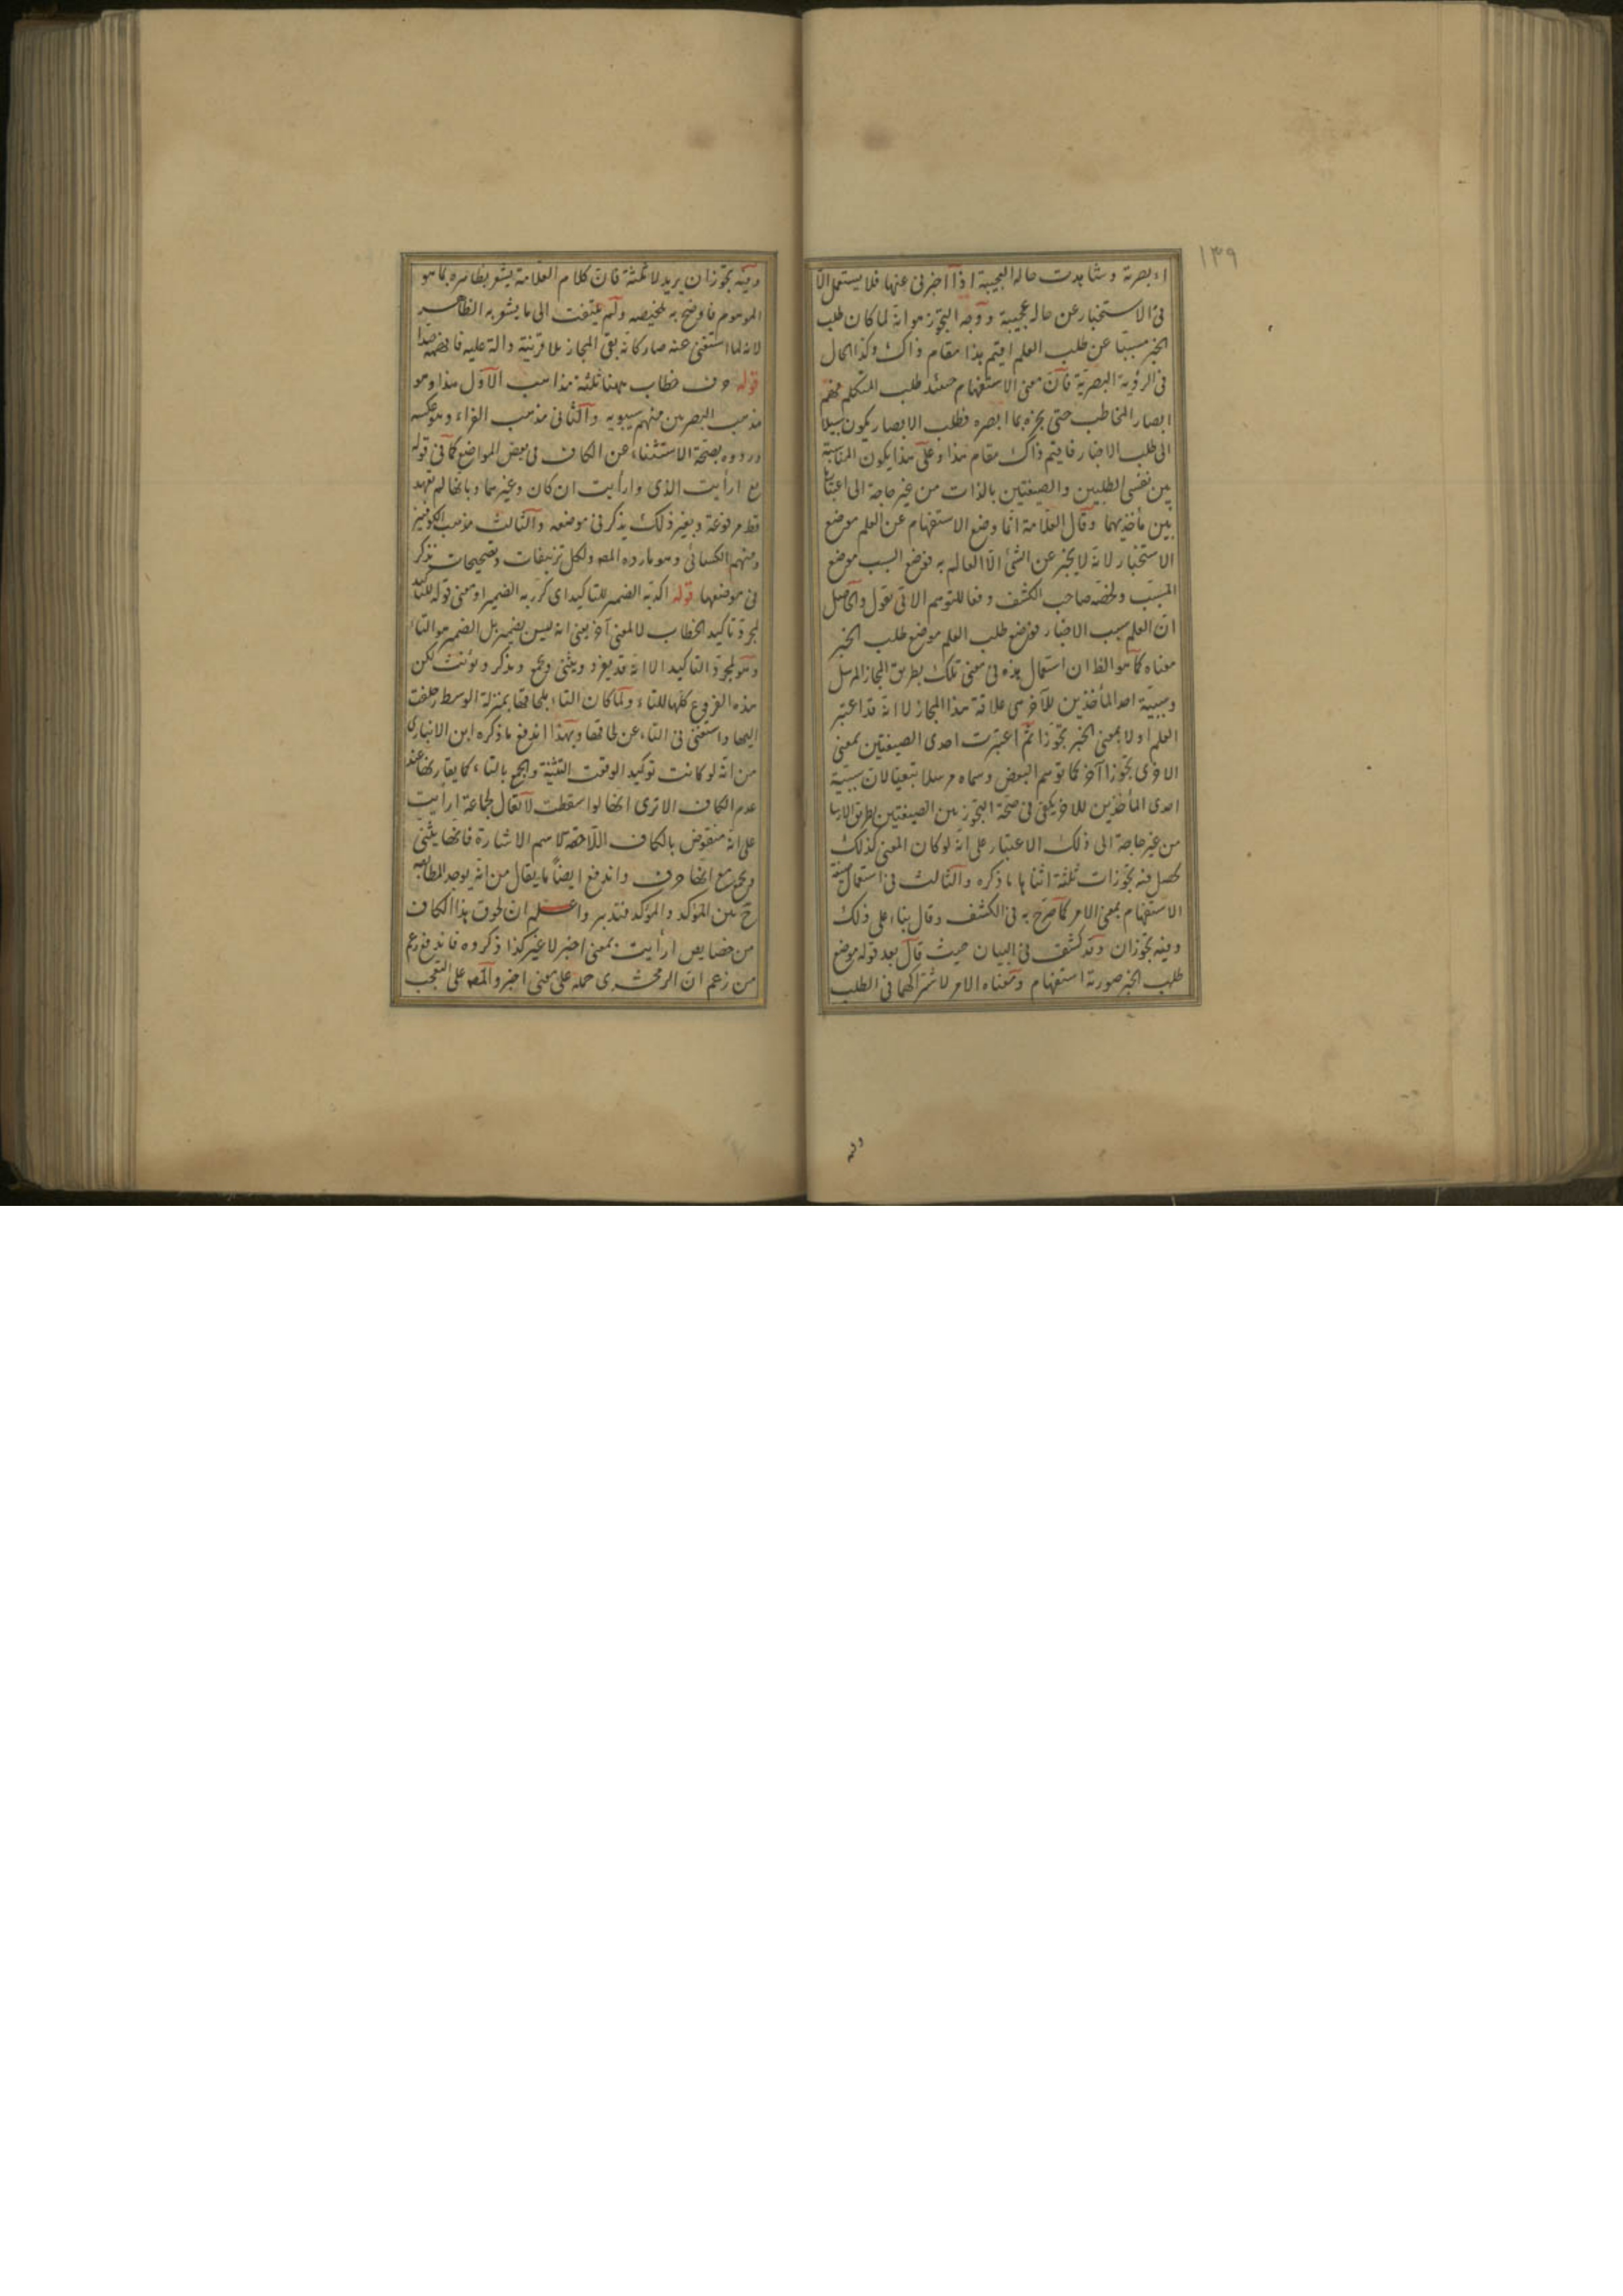 ١٣٩
اء بصرته وشاهدت حاله العجيبة اذا اخبرنى عنها فلا يستعمل الا
فى الاستخبار عن حاله عجيبة ووجه التجوز هو انه لما كان طلب
الخبر مسببا عن طلب العلم اقيم هذا مقام ذاك وكذا الحال
فى الرؤية البصرية فان معنى الاستفهام حينئذ طلب المتكلم فهم
ابصار المخاطب حتى يخبره بما ابصره فطلب الابصار يكون سبيلا
الى طلب الاخبار فاقيم ذاك مقام هذا وعلى هذا يكون المناسبة
بين نفسى الطلبين والصيغتين بالذات من غير حاجة الى اعتبارها
بين مأخذيهما وقال العلامة انما وضع الاستفهام عن العلم موضع
الاستخبار لانه لا يخبر عن الشئ الا العالم به فوضع السبب موضع
المسبب ولخصه صاحب الكشف دفعا للتوهم الاتى بقوله والحاصل
ان العلم سبب الاخبار فوضع طلب العلم موضع طلب الخبر
معناه كما هو الظ ان استعمال هذه فى معنى تلك بطريق المجاز المرسل
وسببية احد المأخذين للآخر هى علاقة هذا المجاز لا انه قد اعتبر
العلم اولا بمعنى الخبر تجوزا ثم اعتبرت احدى الصيغتين بمعنى
الاخرى تجوزا آخر كما توهم البعض وسماه مرسلا تبعيا لان سببية
احدى المأخذين للاخر يكفى فى صحة التجوز بين الصيغتين بطريق الارسا
من غير حاجة الى ذلك الاعتبار على انه لو كان المعنى كذلك
لحصل فيه تجوزات ثلثة اثناها ما ذكره والثالث فى استعمال صيغة
الاستفهام بمعنى الامر كما صرح به فى الكشف وقال بناء على ذلك
وفيه تجوزان وقد كشف فى البيان حيث قال بعد قوله موضع
طلب الخبر صورته استفهام ومعناه الامر لاشتراكهما فى الطلب
وفيه
وفيه تجوزان يريد لا ثلثة فان كلام العلامة يشعر بظاهره بما هو
الموهوم فاوضح به تلخيصه ولم يلتفت الى ما يشعر به الظاهر
لانه لما استغنى عنه صار كانه بقى المجاز بلا قرينة دالة عليه فافهم هذا
قوله حرف خطاب ههنا ثلثة مذاهب الاول هذا وهو
مذهب البصريين منهم سيبويه والثانى مذهب الفراء وهو عكسه
وردوه بصحة الاستثناء عن الكاف فى بعض المواضع كما فى قوله
تع ارأيت الذى وارأيت ان كان وغيرهما وبانها لم تعهد
قط مرفوعة وبغير ذلك يذكر فى موضعه والثالث مذهب الكوفيين
ومنهم الكسائى وهو ما رده المصه ولكل تزييفات وتصحيحات تذكر
فى موضعها قوله اكد به الضمير للتاكيد اى كرر به الضمير ومعنى قوله للتاكيد
لمجرد تاكيد الخطاب لا لمعنى آخر يعنى انه ليس بضمير بل الضمير هو التاء
وهو لمجرد التاكيد الا انه قد يفرد ويثنى ويجمع ويذكر ويؤنث لكن
هذه الفروع كلها للتاء ولما كان التاء بلحاقها بمنزلة الوسط حلفت
اليها واستغنى فى التاء عن لحاقها وبهذا اندفع ما ذكره ابن الانبارى
من انه لو كانت توكيد الوقعت التثنية والجمع بالتاء كما يقارنها عند
عدم الكاف الا ترى انها لو اسقطت لا تقال لجماعة ارأيت
على انه منقوض بالكاف اللاحقة لاسم الاشارة فانها يثنى
ويجمع مع انها حرف واندفع ايضا ما يقال من انه يوجد المطابقة
ح بين المؤكد والمؤكد فتدبر واعلم ان لحوق هذا الكاف
من خصايص ارأيت بمعنى اخبر لا غير كذا ذكروه فاندفع زعم
من زعم ان الزمخشرى حمله على معنى اخبر والمصه على التعجب